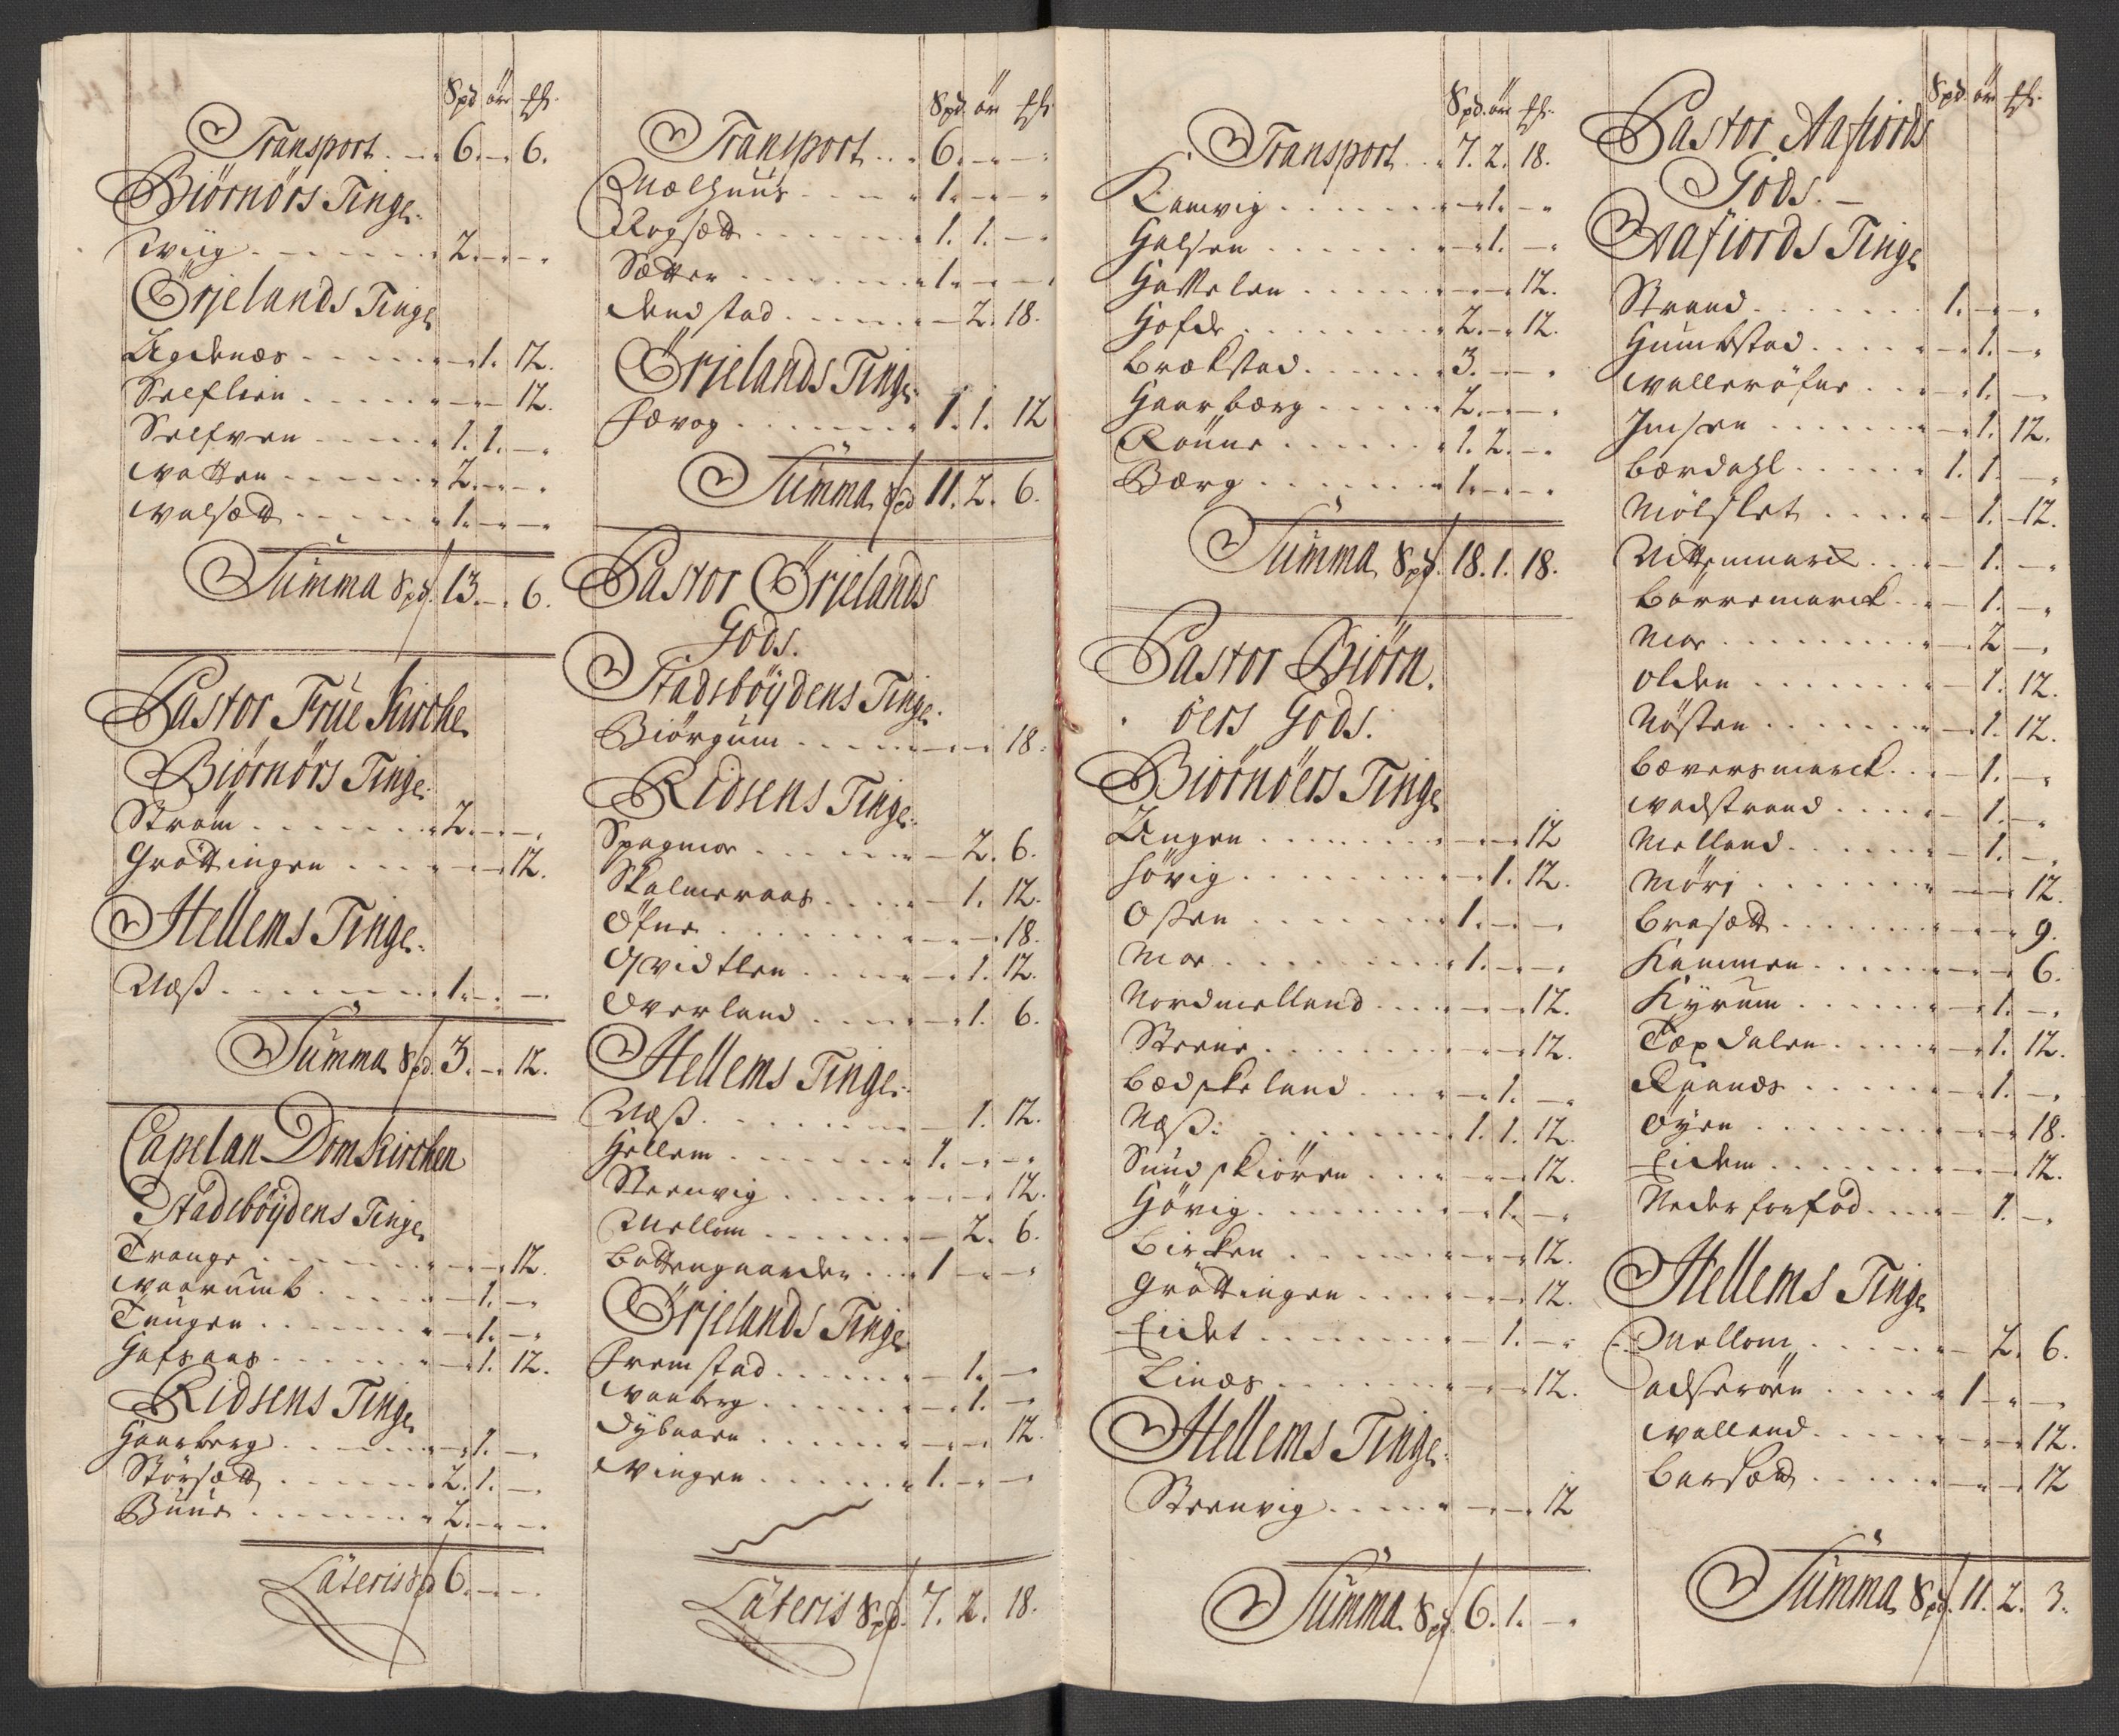 Spd ör ß.
Transport . . 6. – 6.
Biörnörs Tinge.
Wiig . . . 2. – –
Örjelands Tinge
Agdenæs . . . – 1. 12.
Selflien . . . – – 12.
Selfven . . . 1. 1. –
Watten . . . 2. – –
Walsætt . . . 1. – –
Summa Spd. 13. – 6.
Pastor Frue Kirche
Biörnörs Tinge.
Ström . . . 2. – –
Gröttingen . . . – – 12.
Hellems Tinge.
Næß . . . 1. – –
Summa Spd. 3. – 12.
Capelan Domkirchen
Stadsböÿdens Tinge
Trange . . . – – 12.
Waarumb . . . – 1. –
Tungen . . . – 1. –
Hafsaas . . . – 1. 12.
Ridsens Tinge
Haarberg . . . – 1. –
Störsætt . . . 2. 1. –
Buue . . . 2. – –
Lateris Spd 6. – –
Spd. ör ß
Transport . . 6. – –
Mælhuus . . . 1. – –
Rogsætt . . . 1. 1. –
Sætter . . . 1. – –
Dendstad . . . – 2. 18.
Örjelands Tinge.
Fævog . . . 1. 1. 12
Summa Spd 11. 2. 6.
Pastor Örjelands
Gods.
Stadsböÿdens Tinge.
Biörgum . . . – – 18.
Ridsens Tinge.
Spagmoe . . . – 2. 6.
Skalmeraas . . . – 1. 12.
Öfne . . . – – 18.
Qvidtlen . . . – 1. 12.
Overland . . . – 1. 6.
Hellems Tinge.
Næß . . . – 1. 12.
Hellem . . . 1. – –
Steenvig . . . – – 12.
Mellom . . . – 2. 6.
Bottengaarden . . . 1 – –
Örjelands Tinge
Fremstad . . . – 1. –
Waaberg . . . – 1. –
Dybaaen . . . – – 12.
Wingen . . . 1. – –
Lateris Spd. 7. 2. 18.
Spd. ör ß.
Transport . . 7. 2. 18.
Kamvig . . . – 1. –
Halsen . . . – 1. –
Hasselen . . . – – 12.
Hofde . . . 2. – 12.
Brækstad . . . 3. – –
Haarberg . . . 2. – –
Rönne . . . 1. 2. –
Bærg . . . 1. – –
Summa Spd. 18. 1. 18.
Pastor Biörn.
öers Gods.
Biörnöers Tinge
Angen . . . – – 12
Höpvig . . . – 1. 12.
Osen . . . 1. – –
Moe . . . 1. – –
Nordmelland . . . – – 12.
Steene . . . – – 12.
Bædskeland . . . – 1. –
Næß . . . 1. 1. 12.
Sundskiören . . . – – 12.
Hövig . . . – 1. –
Bircken . . . – – 12.
Gröttingen . . . – – 12.
Eidet . . . – 1. –
Linæs . . . – – 12.
Hellems Tinge.
Steenvig . . . – – 12
Summa Spd 6. 1. –
Spd. ör ß.
Pastor Aafiords
Gods. –
Aafiords Tinge
Strand . . . 1. – –
Humbstad . . . – 1. –
Wallersöfne . . . – 1. –
Imsen . . . – 1. 12.
Bærdahl . . . 1. 1. –
Mölslet . . . – 1. 12.
Mittenmarck . . . – 1. –
Börremarck . . . – 1. –
Moe . . . – 2 –
Olden . . . – 1. 12.
Nösten . . . – 1. 12.
Bæversmarck . . . – 1. –
Wadstrand . . . – 1. –
Melland . . . – 1. –
Möri . . . – – 12.
Bræsætt . . . – – 9.
Kammen . . . – – 6.
Kyrum . . . – 1. –
Tæpdalen . . . – 1. 12.
Ryanes . . . – 1. –
Öyen . . . – – 18.
Eidem . . . – – 12.
Nederfoefod . . . – 1. –
Hellems Tinge
Mellom . . . – 2. 6.
Adseröen . . . 1 – –
Walland . . . – – 12.
Barsætt . . . – – 12
Summa Spd. 11. 2. 3.